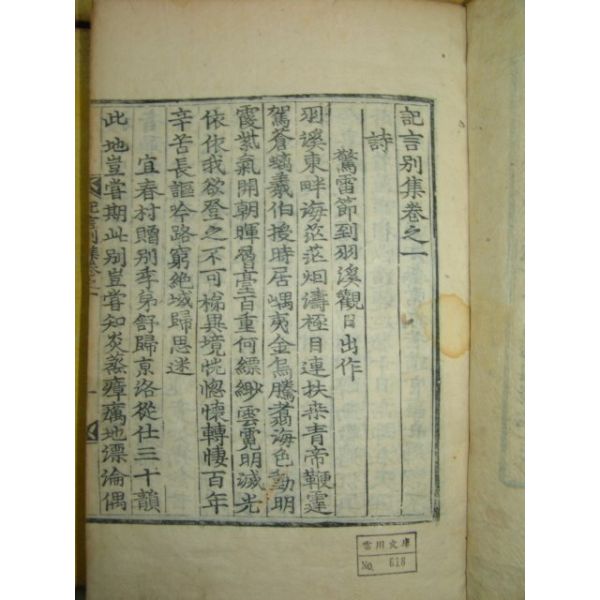 記言別集卷之一
詩
驚雷節到羽溪觀日出作
羽溪東畔海茫茫烟濤極目連扶桑青帝鞭霆
駕蒼螭羲伯授時居嵎夷金烏騰翥海色動明
霞紫氣開朝暉蜃臺百重何縹緲雲霓明滅光
依依我欲登之不可梯異境恍惚懷轉悽百年
辛苦長謳吟路窮絶域歸思迷
宜春村贈別季弟舒歸京洛從仕三十韻
此地豈嘗期此別豈嘗知炎蒸瘴癘地漂淪偶
記言別集卷之一
一
雪川文庫
No. 618